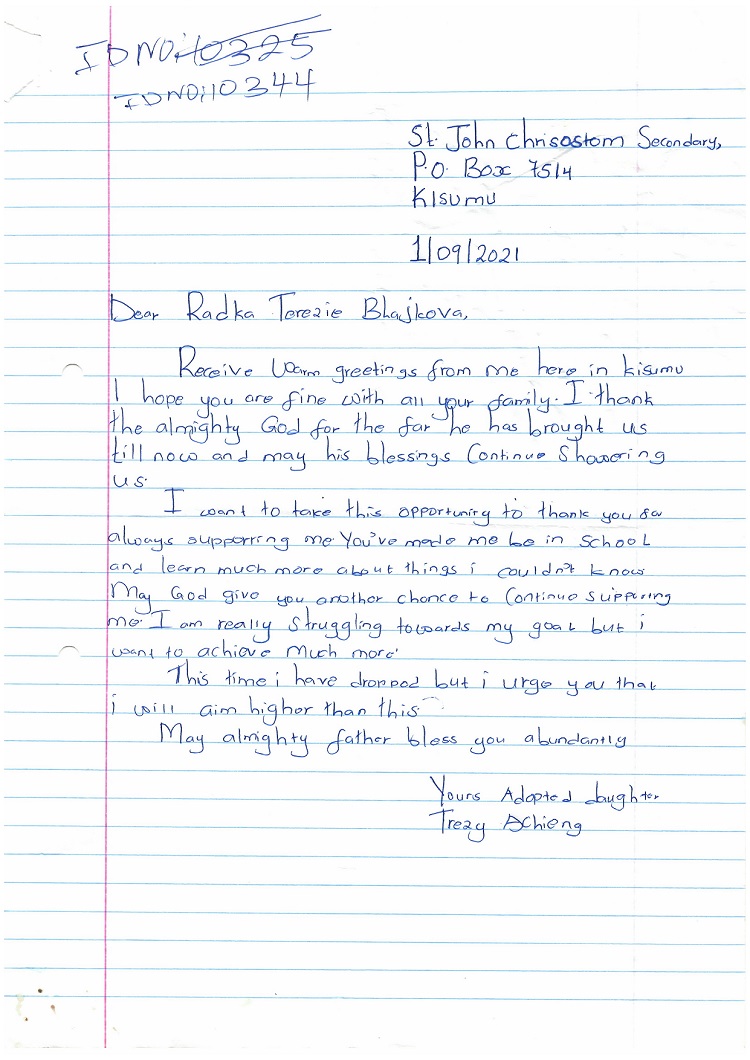 ID NO: 10325
ID NO: 10344
St. John Chrisostom Secondary,
P.O. Box 7514
Kisumu
1/09/2021
Dear Radka Terezie Blajkova,
Receive Warm greetings from me here in kisumu
I hope you are fine with all your family. I thank
the almighty God for the far he has brought us
till now and may his blessings Continue Showering
us.
I want to take this opportunity to thank you for
always supporting me. You've made me be in School
and learn much more about things i couldn't know
May God give you another chance to Continue supporing
me. I am really struggling towards my goal but i
want to achieve much more.
This time i have dropped but i urge you that
i will aim higher than this.
May almighty father bless you abundantly
Yours Adopted daughter
Trezy Achieng